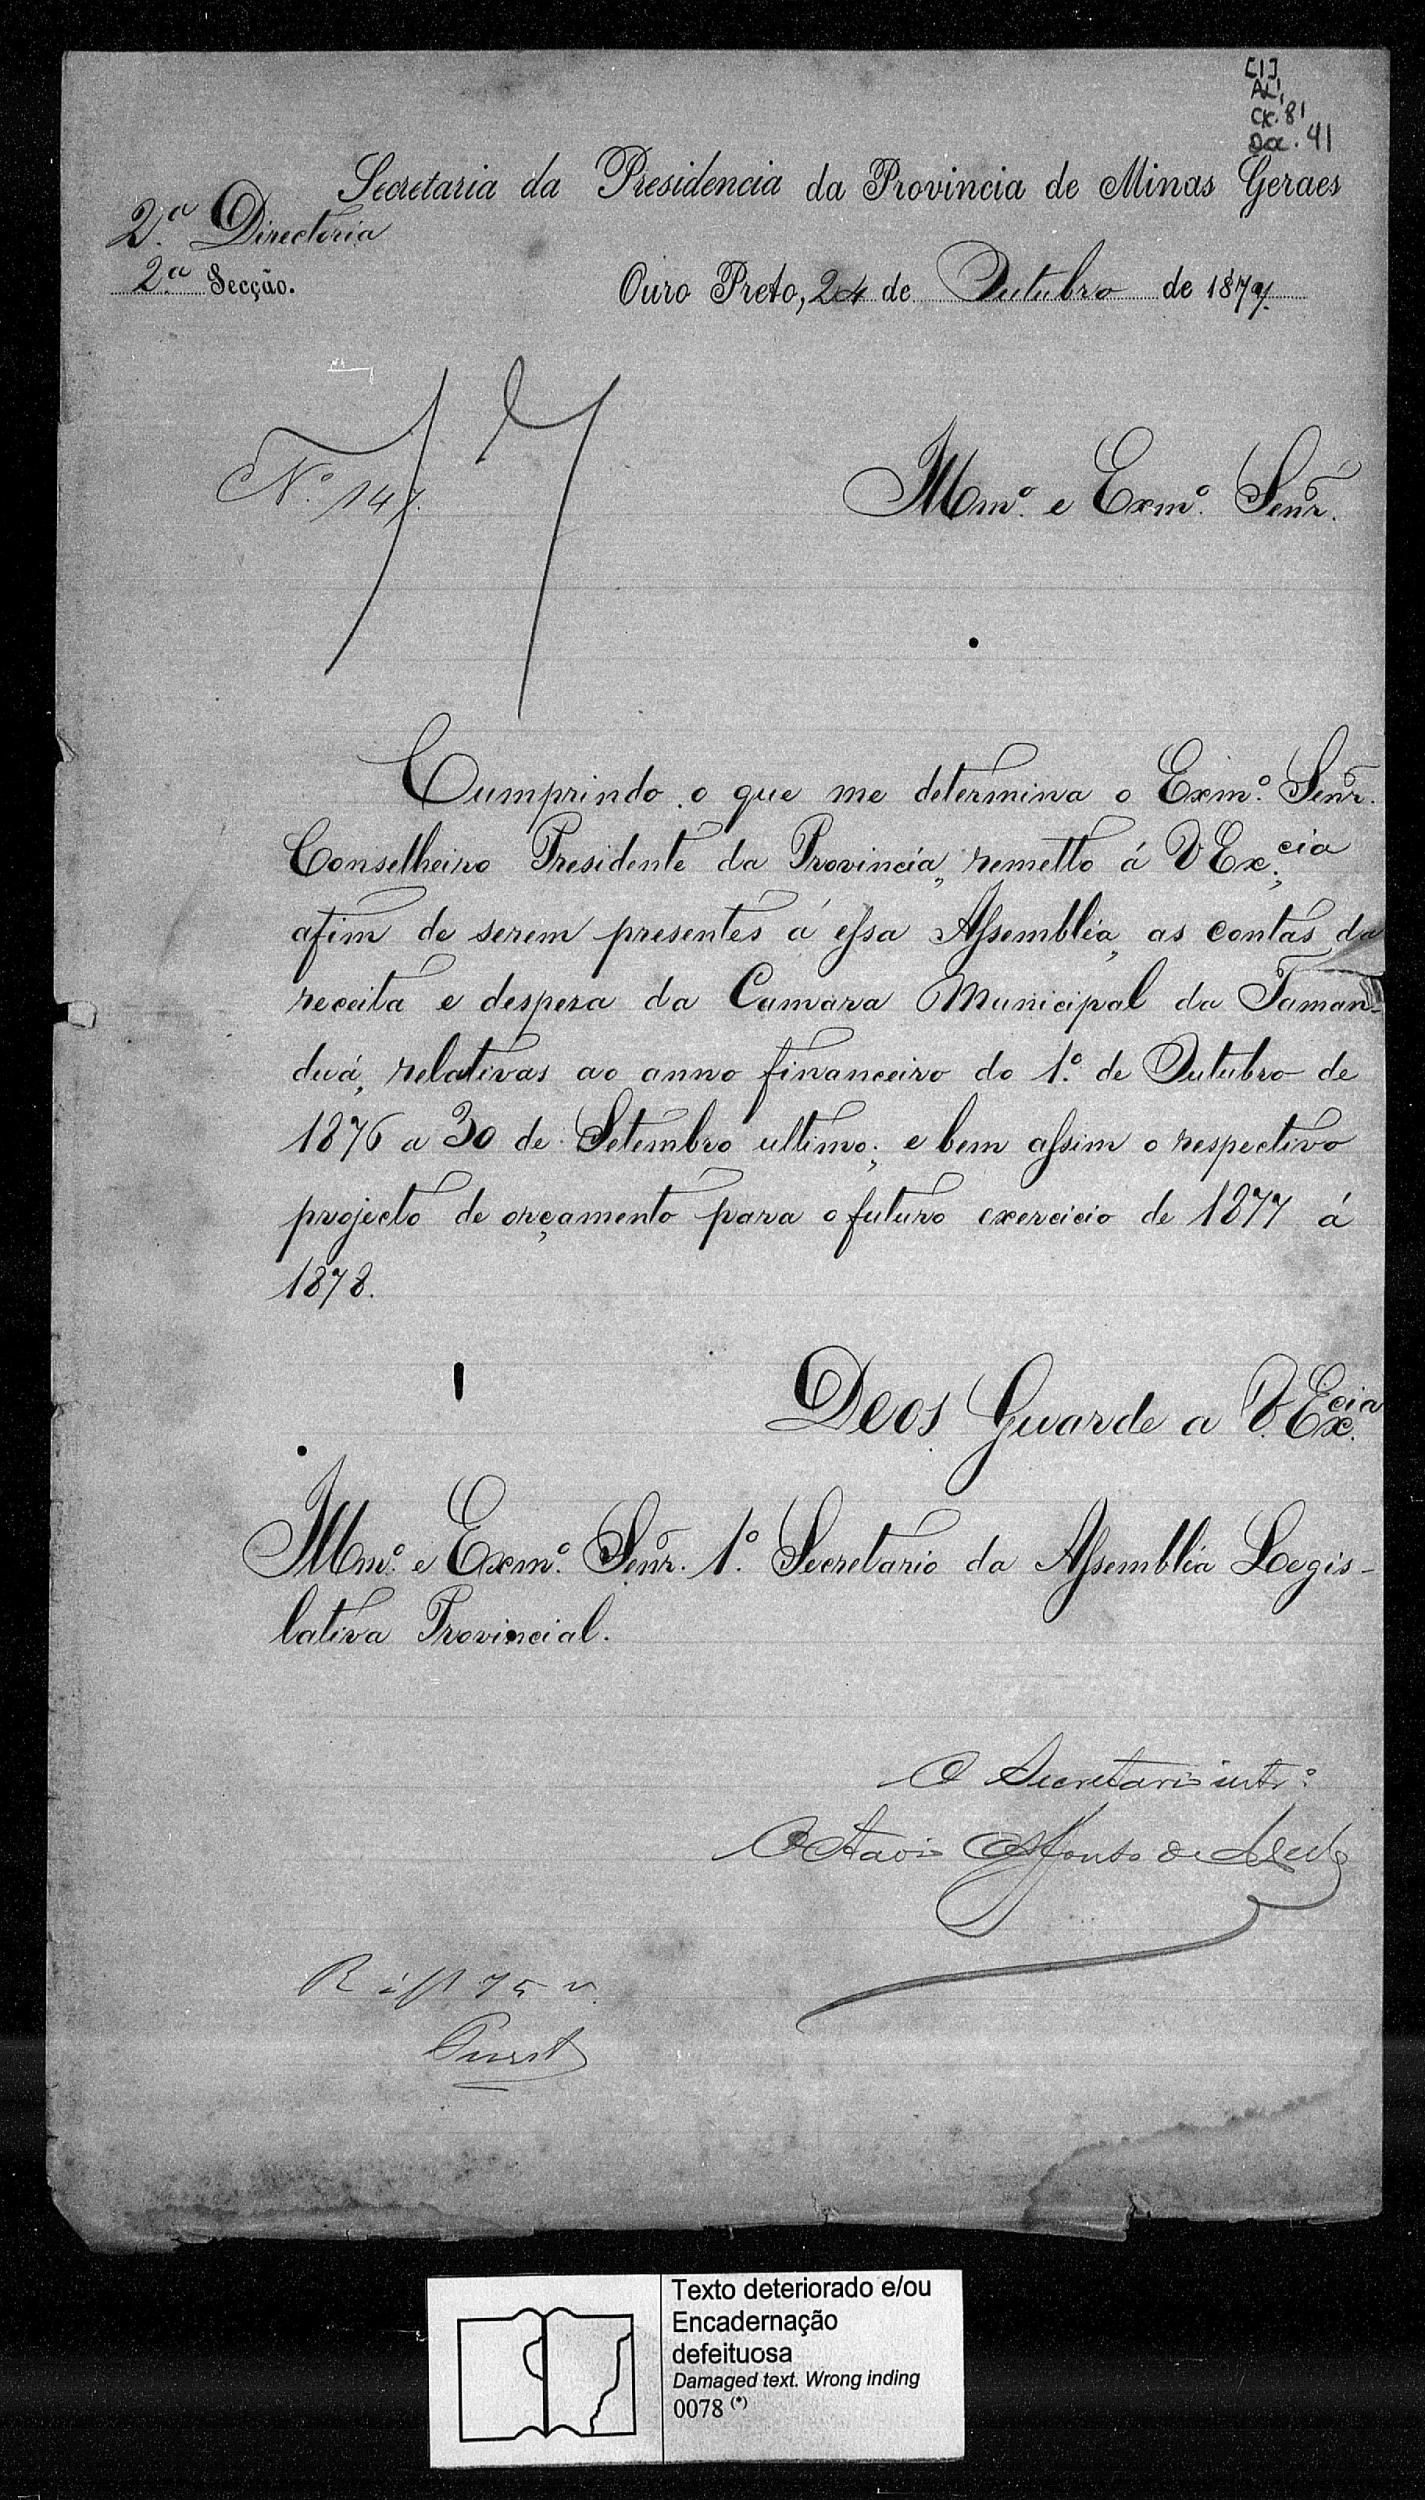 [1]
AL1
CX. 81
Doc. 41
Secretaria da Presidencia da Provincia de Minas Geraes
2.ª Directoria
2.ª Secção.
Ouro Preto, 24 de Outubro de 1877.
N.º 147.
Illm.º e Exm.º Senr.
Cumprindo o que me determina o Exm.º Senr.
Conselheiro Presidente da Provincia, remetto á V Ex.cia,
afim de serem presentes á essa Assembléa, as contas da
receita e despeza da Camara Municipal da Taman-
duá, relativas ao anno financeiro do 1.º de Outubro de
1876 a 30 de Setembro ultimo; e bem assim o respectivo
projecto de orçamento para o futuro exercicio de 1877 á
1878.
Deos Guarde a V. Ex.cia
Illm.º e Exm.º Senr. 1.º Secretario da Assembléa Legis-
lativa Provincial.
O Secretario intr.º
Octavio Affonso de
Texto deteriorado e/ou
Encadernação
defeituosa
Damaged text. Wrong inding
0078 (*)